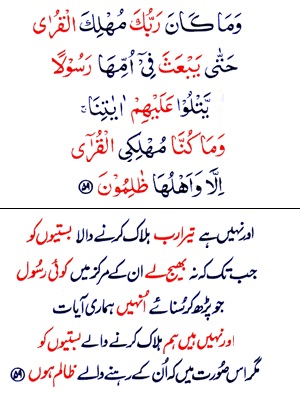 وَمَا كَانَ رَبُّكَ مُهْلِكَ الْقُرٰى
حَتّٰى يَبْعَثَ فِىْٓ اُمِّهَا رَسُوْلًا
يَّتْلُوْا عَلَيْهِمْ اٰيٰتِنَا ۚ
وَمَا كُنَّا مُهْلِكِى الْقُرٰٓى
اِلَّا وَاَهْلُهَا ظٰلِمُوْنَ ﴿۵۹﴾
اور نہیں ہے تیرا رب ہلاک کرنے والا بستیوں کو
جب تک کہ نہ بھیج لے ان کے مرکز میں کوئی رسول
جو پڑھ کر سُنائے اُنہیں ہماری آیات
اور نہیں ہیں ہم ہلاک کرنے والے بستیوں کو
مگر اس صُورت میں کہ اُن کے رہنے والے ظالم ہوں ﴿۵۹﴾